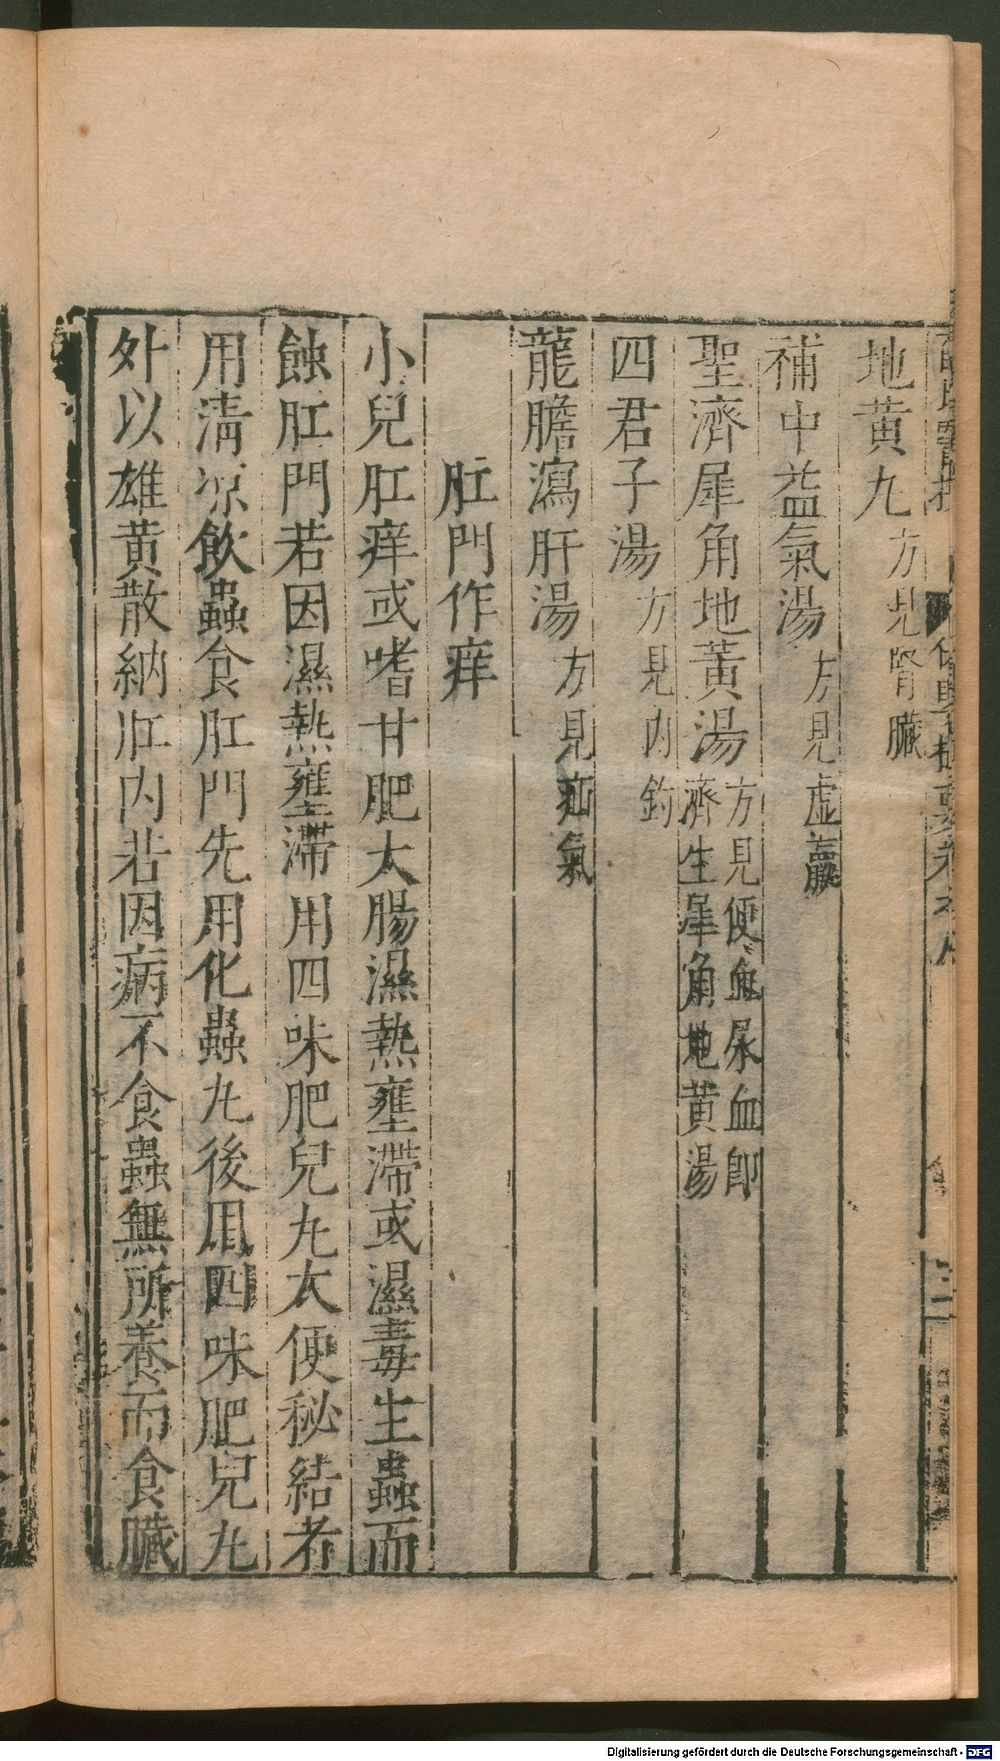 地黄九方見腎臟
補中益氣湯方見虛羸
聖濟犀角地黃湯方見便血尿血即
濟生犀角地黄湯
四君子湯方見内釣
龍膽瀉肝湯方見疝氣
肛門作痒
小兒肛痒或嗜甘肥大腸濕熱壅滯或濕毒生蟲而
蝕肛門若因濕熱壅滯用四味肥兒九大便秘結者
用清凉飲蟲食肛門先用化蟲九後用四味肥兒九
外以雄黄散納肛内若因病不食蟲無所養而食臟
Digitalisierung gefördert durch die Deutsche Forschungsgemeinschaft - DFG